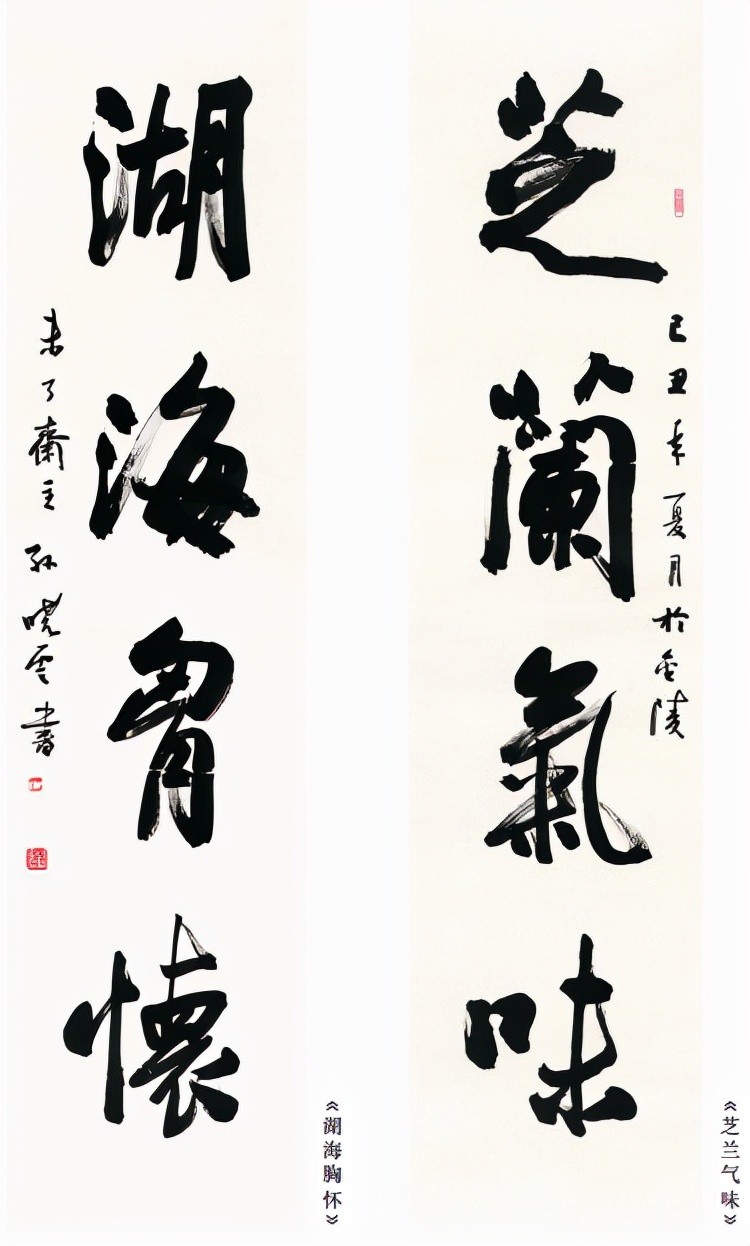 芝蘭氣味
己丑年夏月於金陵
《芝兰气味》
湖海胷懷
未了齋主孙晓云書
《湖海胸怀》